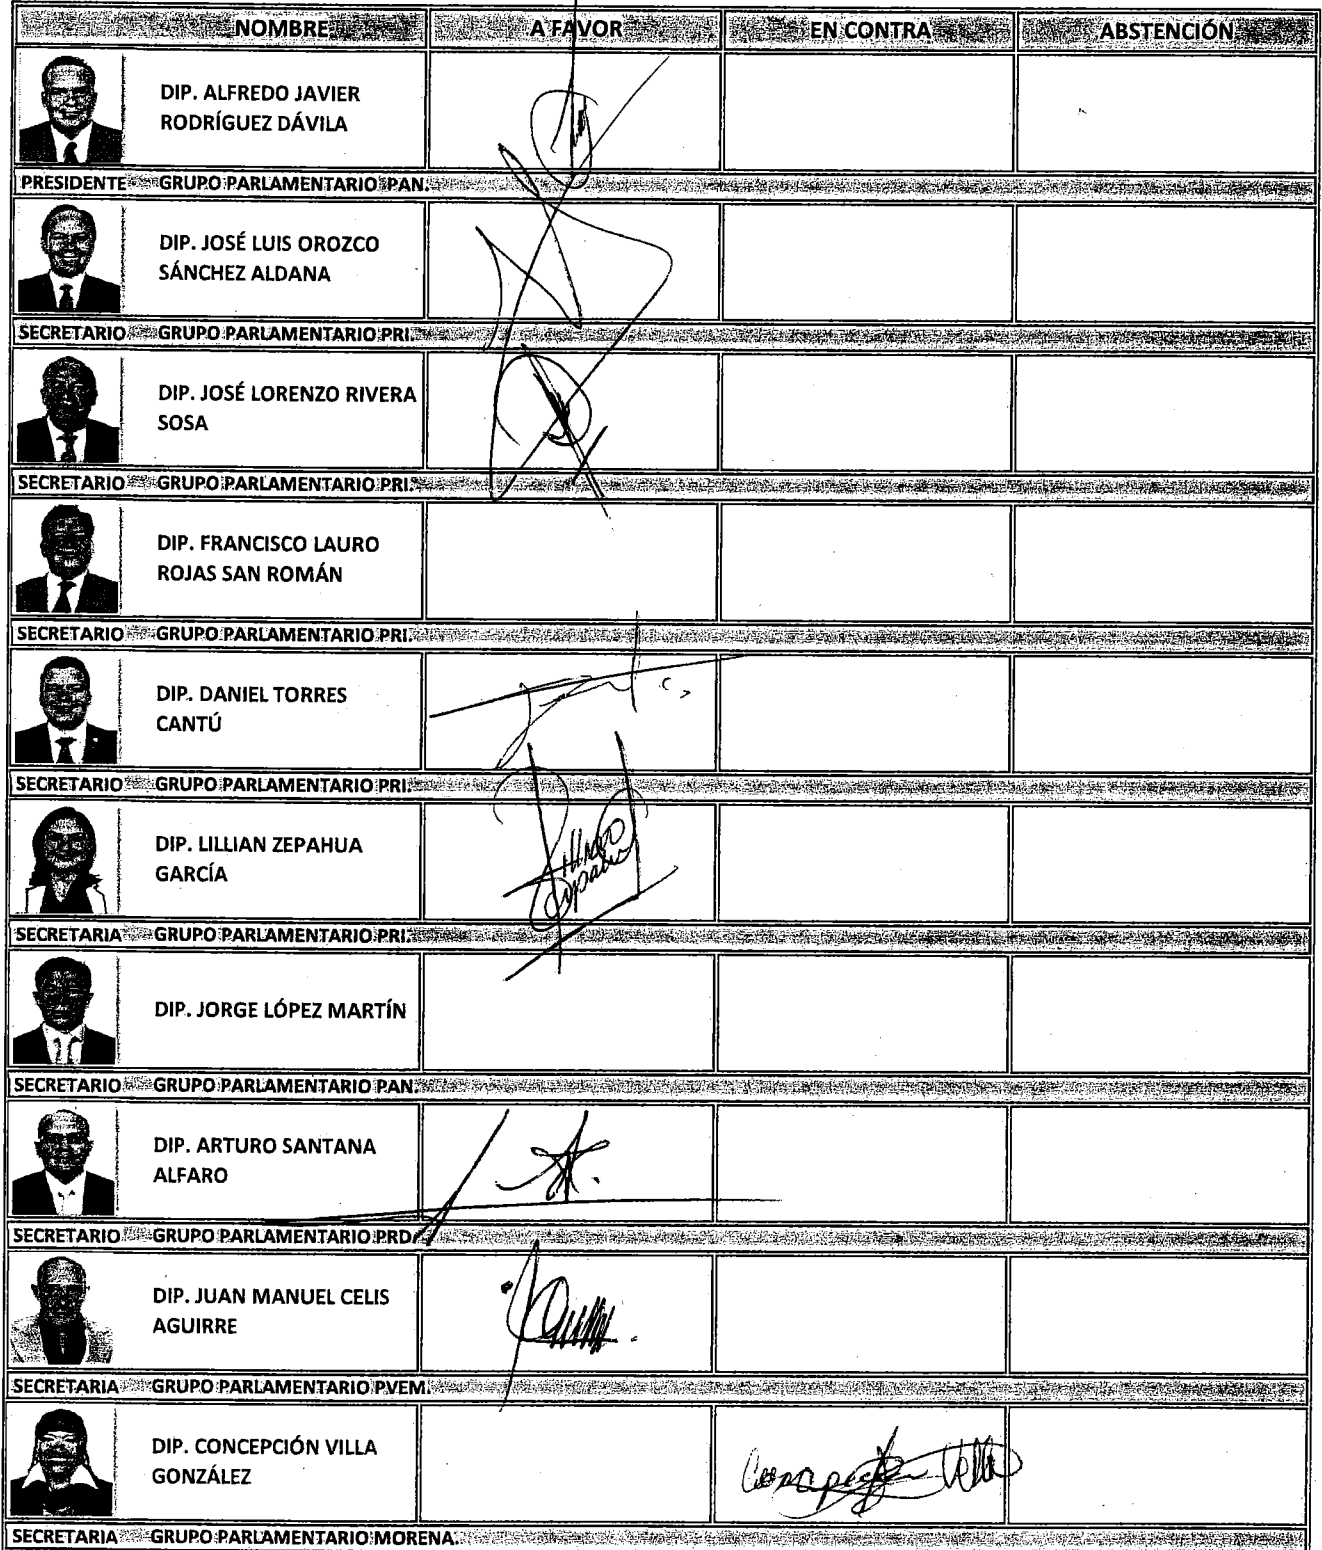 NOMBRE A FAVOR EN CONTRA ABSTENCIÓN
DIP. ALFREDO JAVIER
RODRÍGUEZ DÁVILA
PRESIDENTE GRUPO PARLAMENTARIO PAN.
DIP. JOSÉ LUIS OROZCO
SÁNCHEZ ALDANA
SECRETARIO GRUPO PARLAMENTARIO PRI.
DIP. JOSÉ LORENZO RIVERA
SOSA
SECRETARIO GRUPO PARLAMENTARIO PRI.
DIP. FRANCISCO LAURO
ROJAS SAN ROMÁN
SECRETARIO GRUPO PARLAMENTARIO PRI.
DIP. DANIEL TORRES
CANTÚ
SECRETARIO GRUPO PARLAMENTARIO PRI.
DIP. LILLIAN ZEPAHUA
GARCÍA
SECRETARIA GRUPO PARLAMENTARIO PRI.
DIP. JORGE LÓPEZ MARTÍN
SECRETARIO GRUPO PARLAMENTARIO PAN.
DIP. ARTURO SANTANA
ALFARO
SECRETARIO GRUPO PARLAMENTARIO PRD
DIP. JUAN MANUEL CELIS
AGUIRRE
SECRETARIA GRUPO PARLAMENTARIO PVEM.
DIP. CONCEPCIÓN VILLA
GONZÁLEZ
SECRETARIA GRUPO PARLAMENTARIO MORENA.